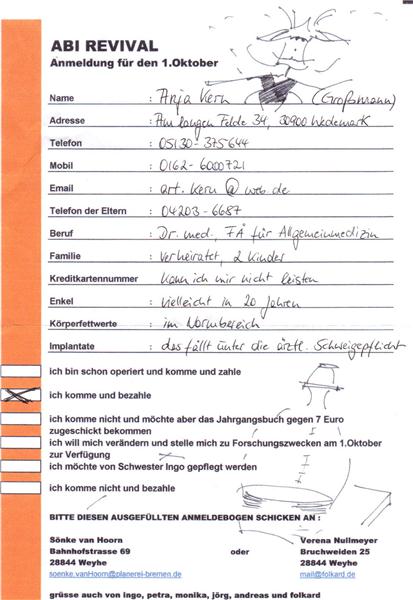 ABI REVIVAL
Anmeldung für den 1.Oktober
Name : Anja Kern (Großmann)
Adresse : Am langen Felde 34, 30900 Wedemark
Telefon : 05130-375644
Mobil : 0162-6000721
Email : art.kern@web.de
Telefon der Eltern : 04203-6687
Beruf : Dr. med., FÄ für Allgemeinmedizin
Familie : Verheiratet, 2 Kinder
Kreditkartennummer : Kann ich mir nicht leisten
Enkel : vielleicht in 20 Jahren
Körperfettwerte : im Normbereich
Implantate : das fällt unter die ärztl. Schweigepflicht
ich bin schon operiert und komme und zahle
ich komme und bezahle
ich komme nicht und möchte aber das Jahrgangsbuch gegen 7 Euro
zugeschickt bekommen
ich will mich verändern und stelle mich zu Forschungszwecken am 1.Oktober
zur Verfügung
ich möchte von Schwester Ingo gepflegt werden
ich komme nicht und bezahle
BITTE DIESEN AUSGEFÜLLTEN ANMELDEBOGEN SCHICKEN AN :
Sönke van Hoorn Verena Nullmeyer
Bahnhofstrasse 69 oder Bruchweiden 25
28844 Weyhe 28844 Weyhe
soenke.vanHoorn@planerei-bremen.de mail@folkard.de
grüsse auch von ingo, petra, monika, jörg, andreas und folkard